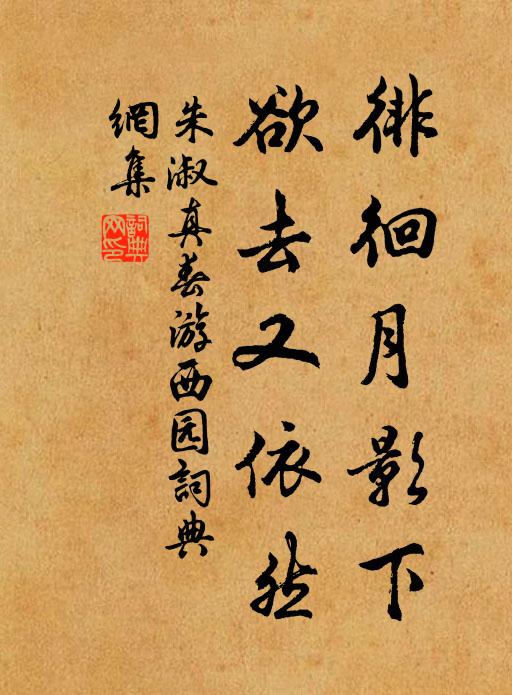 徘徊月影下
欲去又依然
朱淑真春游西园詞典
網集
詞典网印